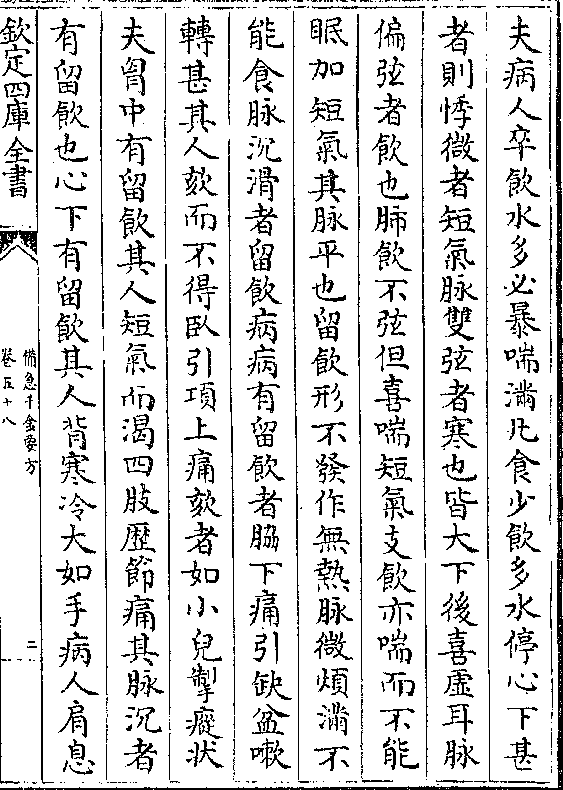 夫病人卒飲水多必暴喘滿凡食少飲多水停心下甚
者則悸微者短氣脉雙弦者寒也皆大下後喜虛耳脉
偏弦者飲也肺飲不弦但喜喘短氣支飲亦喘而不能
眠加短氣其脉平也留飲形不發作無熱脉微煩滿不
能食脉沉滑者留飲病病有留飲者脇下痛引缺盆嗽
轉甚其人欬而不得臥引項上痛欬者如小兒掣瘲状
夫胷中有留飲其人短氣而渴四肢歴節痛其脉沉者
有留飲也心下有留飲其人背寒冷大如手病人肩息
欽定四庫全書
備急千金要方
卷五十八
二